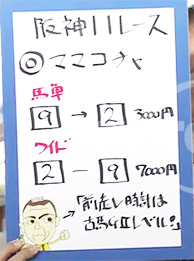 阪神11レース
◎ママコチャ
馬単
9→2 3000円
ワイド
2－9 7000円
「前走し時計は
古馬GⅡレベル!」